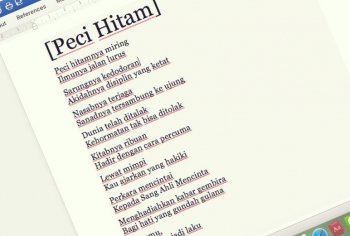 References
[Peci Hitam]
Peci hitamnya miring
Ilmunya jalan lurus
Sarungnya kedodoran
Akidahnya disiplin yang ketat
Nasabnya terjaga
Sanadnya tersambung ke ujung
Dunia telah ditalak
Kehormatan tak bisa ditolak
Kitabnya ribuan
Hadir dengan cara percuma
Lewat mimpi
Kau ajarkan yang hakiki
Perkara mencintai
Kepada Sang Ahli Mencinta
Menghadiahkan kabar gembira
Bagi hati yang gundah gulana
jadi laku